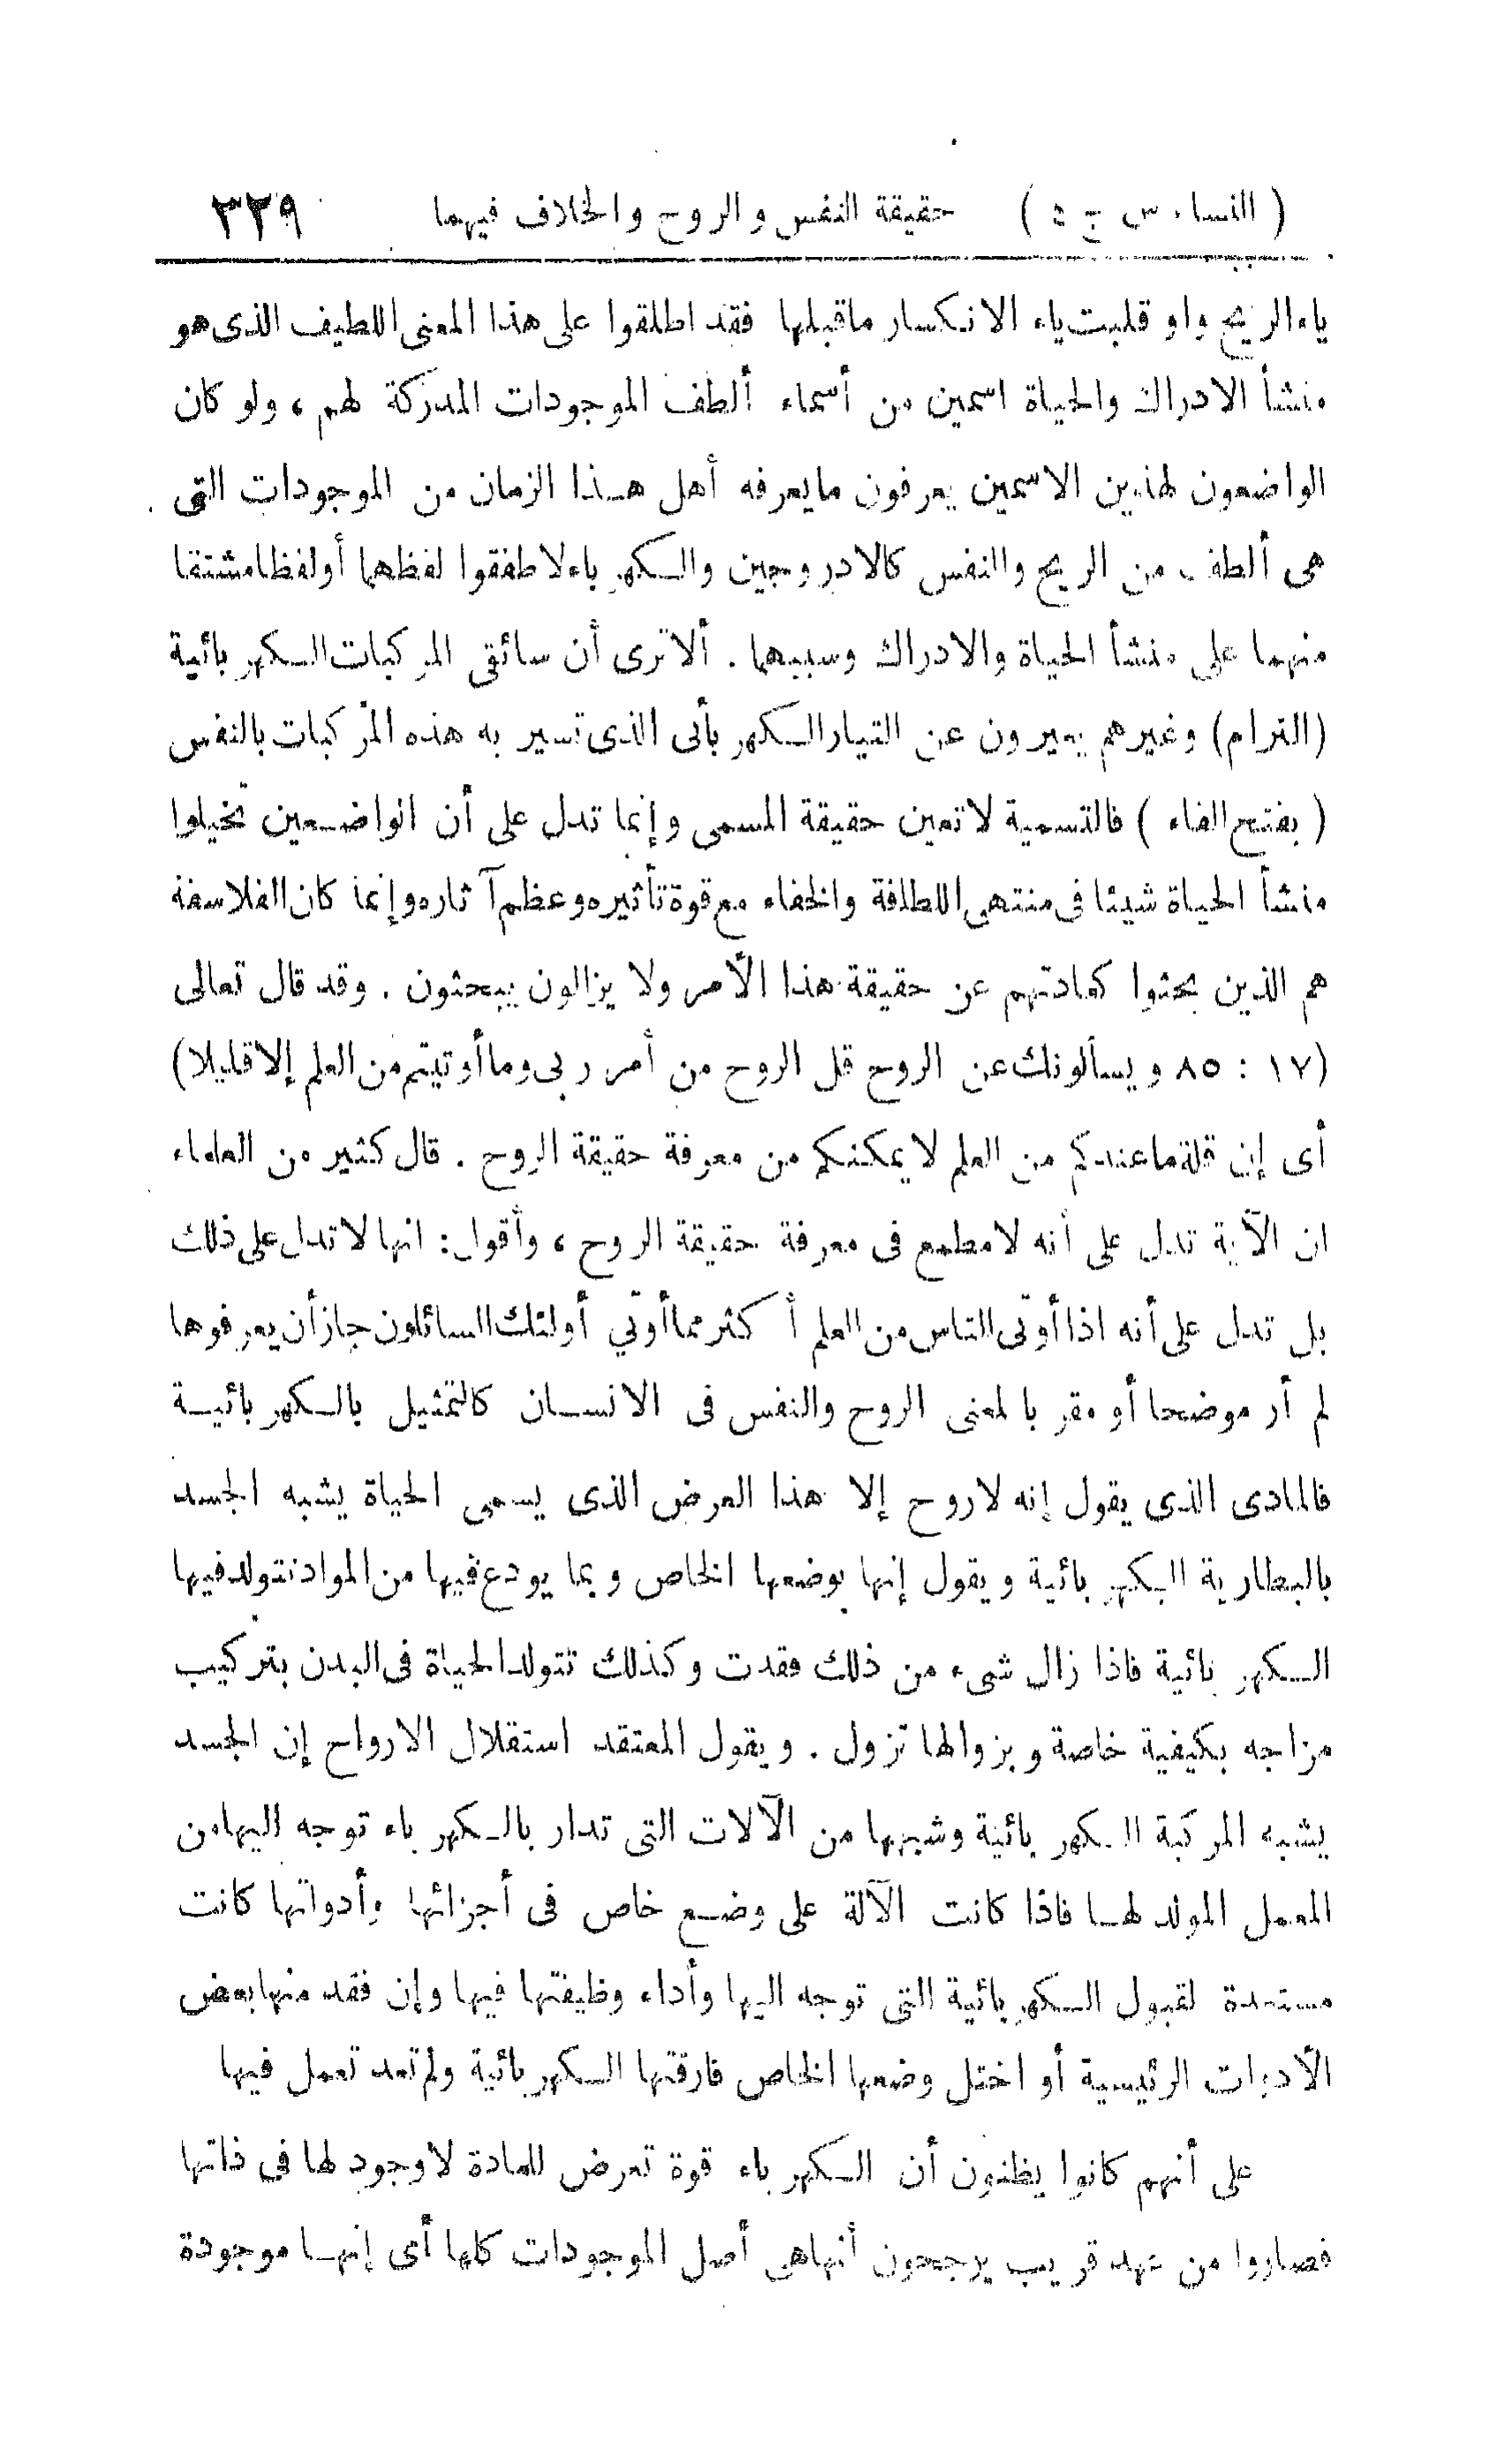 ( النساء . س ج ٤ ) حقيقة النفس والروح والخلاف فيهما ٣٢٩
ياء الريح واو قلبت ياء الانكسار ماقبلها فقد اطلقوا على هذا المعنى اللطيف الذى هو
منشأ الادراك والحياة اسمين من أسماء ألطف الموجودات المدركة لهم ، ولو كان
الواضعون لهذين الاسمين يعرفون مايعرفه أهل هذا الزمان من الموجودات التى
هى ألطف من الريح والنفس كالادروجين والكهرباء لاطفقوا لفظهما أولفظا مشتقا
منهما على منشأ الحياة والادراك وسببهما . ألا ترى أن سائقى المركبات الكهربائية
(الترام) وغيرهم يعبرون عن التيار الكهربأئى الذى تسير به هذه المركبات بالنفس
( بفتح الفاء ) فالتسمية لاتعين حقيقة المسمى وإنما تدل على أن الواضعين تخيلوا
منشأ الحياة شيئا فى منتهى اللطافة والخفاء مع قوة تأثيره وعظم آثاره وإنما كان الفلاسفة
هم الذين بحثوا كعادتهم عن حقيقة هذا الأمر ولا يزالون يبحثون . وقد قال تعالى
(١٧ : ٨٥ ويسألونك عن الروح قل الروح من أمر ربى وما أوتيتم من العلم إلا قليلا)
أى إن قلة ماعندكم من العلم لايمكنكم من معرفة حقيقة الروح . قال كثير من العلماء
ان الآية تدل على أنه لامطمع فى معرفة حقيقة الروح ، وأقول : انها لاتدل على ذلك
بل تدل على أنه اذا أوتى الناس من العلم أكثر مما أوتي أولئك السائلون جاز أن يعرفوها
لم أر موضحا أو مقربا لمعنى الروح والنفس فى الانسان كالتمثيل بالكهربائية
فالمادى الذى يقول إنه لاروح إلا هذا العرض الذى يسمى الحياة يشبه الجسد
بالبطارية الكهربائية ويقول إنها بوضعها الخاص وبما يودع فيها من المواد تتولد فيها
الكهربائية فاذا زال شىء من ذلك فقدت وكذلك تتولد الحياة فى البدن بتركيب
مزاجه بكيفية خاصة وبزوالها تزول . ويقول المعتقد استقلال الارواح إن الجسد
يشبه المركبة الكهربائية وشبهها من الآلات التى تدار بالكهرباء توجه اليها من
المعمل المولد لها فاذا كانت الآلة على وضع خاص فى أجزائها وأدواتها كانت
مستعدة لقبول الكهربائية التى توجه اليها وأداء وظيفتها فيها وإن فقد منها بعض
الأدوات الرئيسية أو اختل وضعها الخاص فارقتها الكهربائية ولم تعد تعمل فيها
على أنهم كانوا يظنون أن الكهرباء قوة تعرض للمادة لاوجود لها فى ذاتها
فصاروا من عهد قريب يرجحون أنها هى أصل الموجودات كلها أى إنها موجودة